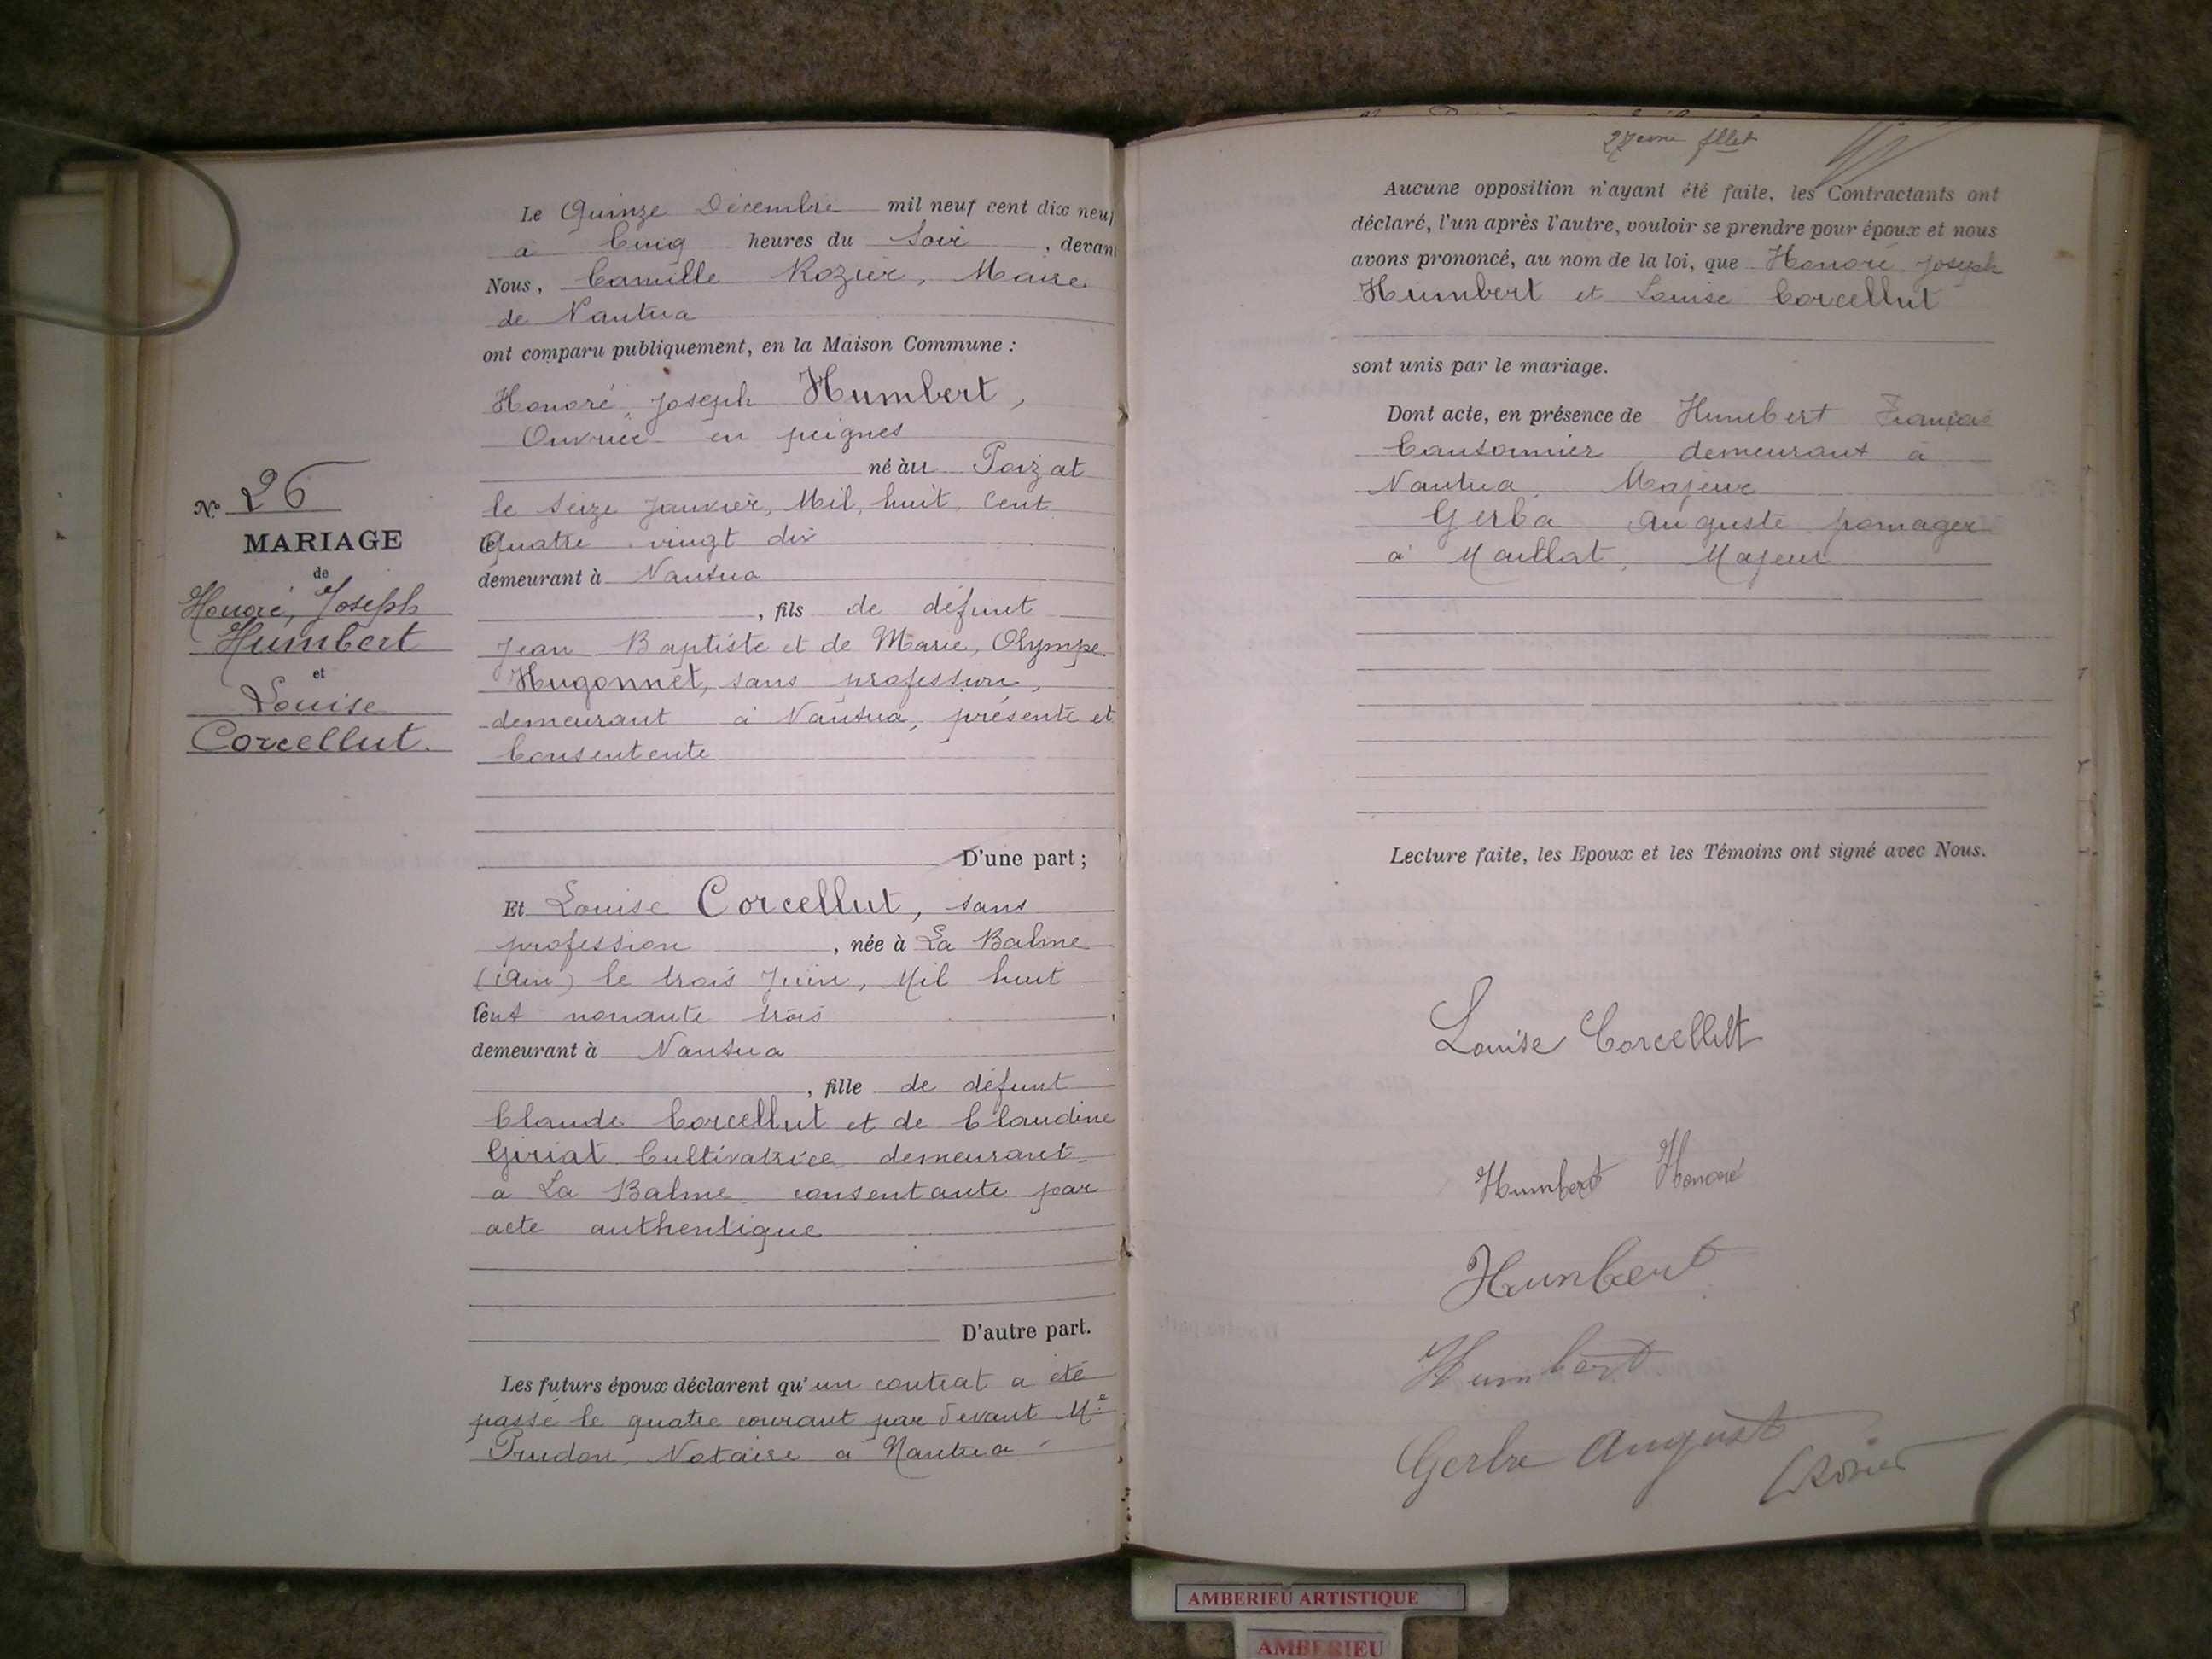 Le Quinze Décembre mil neuf cent dix neuf
à Cinq heures du Soir, devan
Nous, Camille Rozier, Maire
de Nantua
ont comparu publiquement, en la Maison Commune :
Honoré, Joseph Humbert,
Ouvrier en peignes
né au Poizat
le seize Janvier, Mil, huit, Cent
Quatre vingt dix
demeurant à Nantua
, fils de défunt
Jean Baptiste et de Marie, Olympe
Hugonnet, sans profession,
demeurant à Nantua, présente et
Consentente
D'une part ;
N° 26
MARIAGE
de
Honoré, Joseph
Humbert
et
Louise
Corcellut.
Et Louise Corcellut, sans
profession, née à La Balme
(Ain) le trois Juin, Mil huit
Cent nonante trois
demeurant à Nantua
, fille de défunt
Claude Corcellut et de Claudine
Giriat Cultivatrice demeurant
a La Balme consentante par
acte authentique
D'autre part.
Les futurs époux déclarent qu'un contrat a été
passé le quatre courant par devant Me
Prudon, Notaire à Nantua
27eme fllet
Aucune opposition n'ayant été faite, les Contractants ont
déclaré, l'un après l'autre, vouloir se prendre pour époux et nous
avons prononcé, au nom de la loi, que Honoré Joseph
Humbert et Louise Corcellut
sont unis par le mariage.
Dont acte, en présence de Humbert François
Cantonnier demeurant à
Nantua, Majeur
Gerba Auguste fromager
à Maillat, Majeur
Lecture faite, les Epoux et les Témoins ont signé avec Nous.
Louise Corcellut
Humbert Honoré
Humbert
Humbert
Gerba August
CRozier
AMBERIEU ARTISTIQUE
AMBERIEU